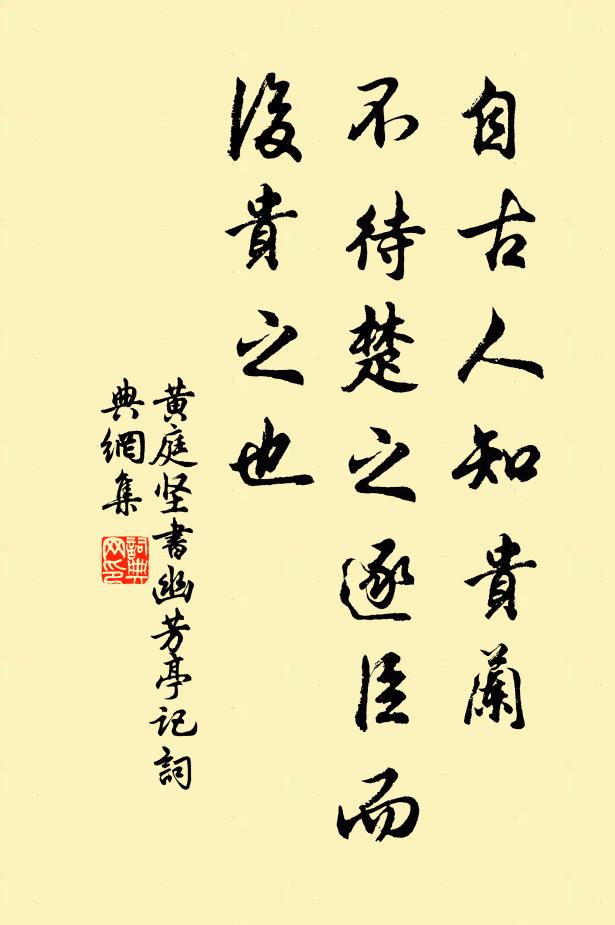 自古人知貴蘭
不待楚之逐臣而
後貴之也
黄庭坚書幽芳亭記詞
典網集
詞典網印